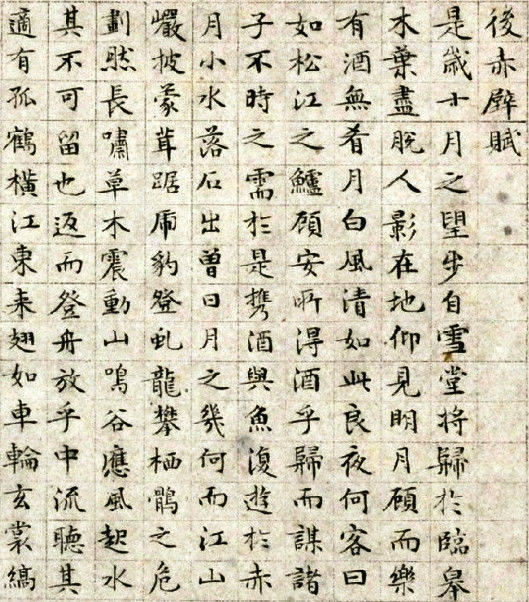 後赤壁賦
是歲十月之望步自雪堂將歸於臨皋
木葉盡脫人影在地仰見明月顧而樂
有酒無肴月白風清如此良夜何客曰
如松江之鱸顧安所得酒乎歸而謀諸
子不時之需於是攜酒與魚復遊於赤
月小水落石出曾日月之幾何而江山
巖披蒙茸踞虎豹登虬龍攀栖鶻之危
劃然長嘯草木震動山鳴谷應風起水
其不可留也返而登舟放乎中流聽其
適有孤鶴橫江東來翅如車輪玄裳縞